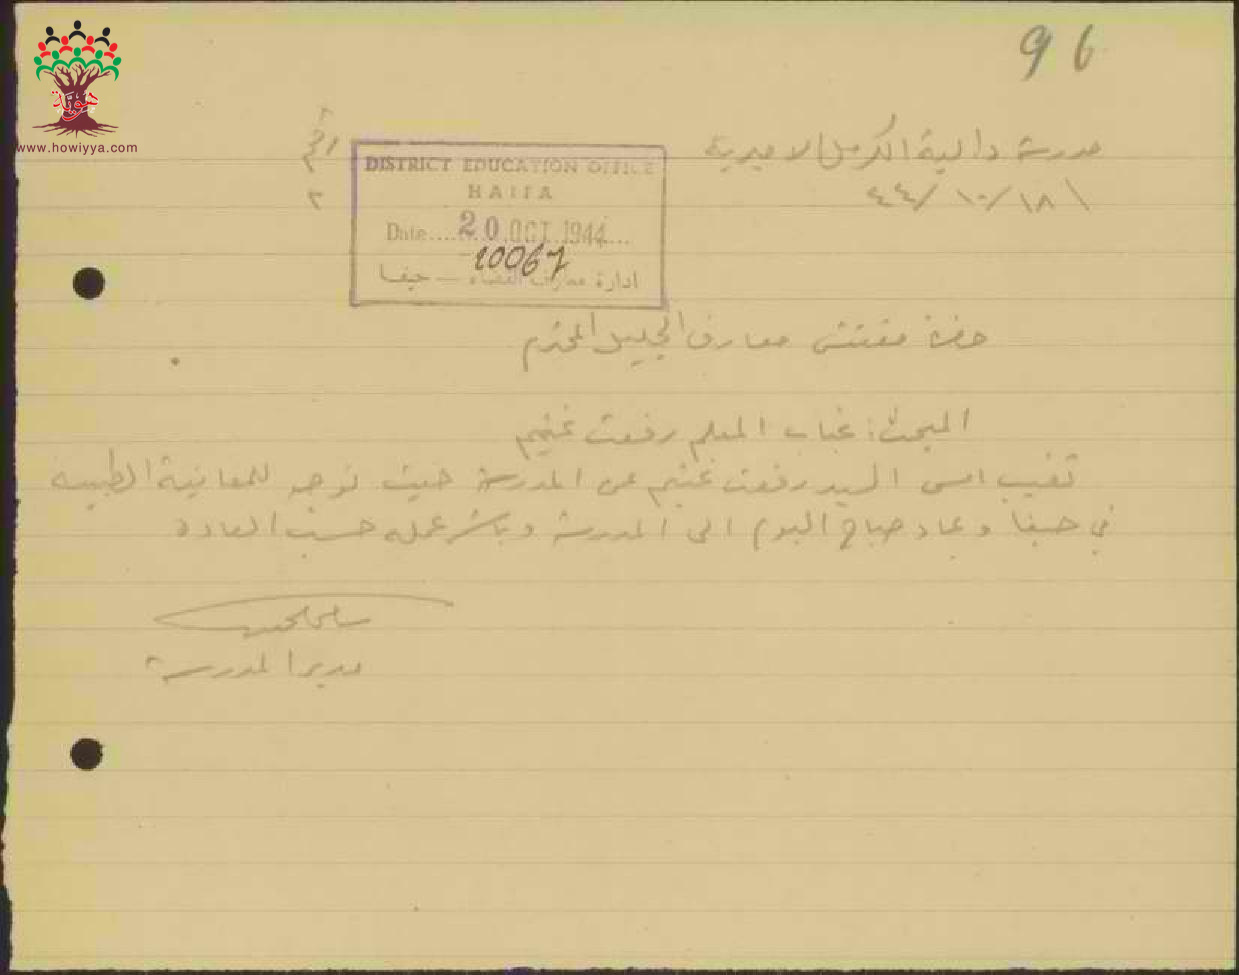 96
مدرسة دالية الكرمل الاميرية
١٨/١٠/٤٤
هوية
www.howiyya.com
DISTRICT EDUCATION OFFICE
HAIFA
Date.... 20 OCT 1944...
10067
ادارة معارف القضاء — حيفا
حضرة مفتش معارف الجليل المحترم
المبحث: غياب المعلم رفعت غنيم
تغيب امس السيد رفعت غنيم عن المدرسة حيث توجه للمعاينة الطبية
في حيفا وعاد صباح اليوم الى المدرسة وباشر عمله حسب العادة
مدير المدرسة